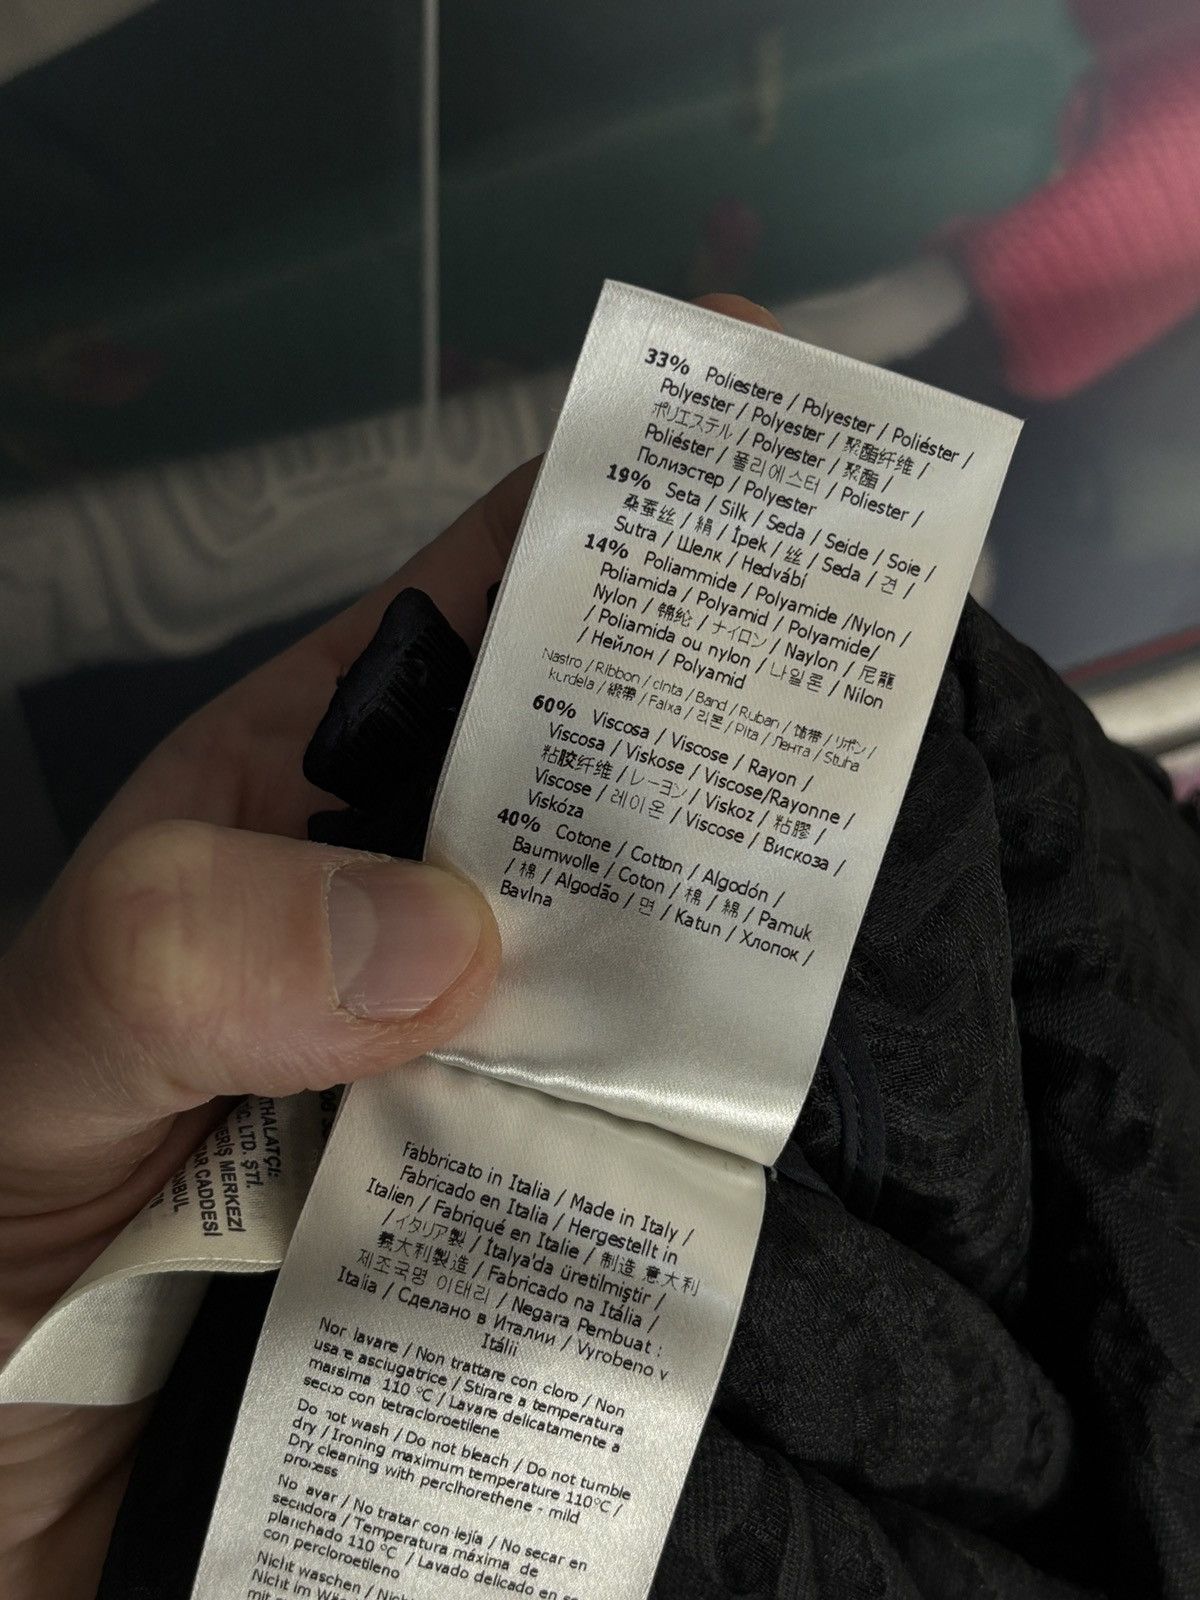 33% Poliestere / Polyester / Poliéster /
Polyester / Polyester / 聚酯纤维 /
ポリエステル / Polyester / 聚酯 /
Poliéster / 폴리에스터 / Poliester /
Полиэстер / Polyester
19% Seta / Silk / Seda / Seide / Soie /
桑蚕丝 / 絹 / İpek / 丝 / Seda / 견 /
Sutra / Шелк / Hedvábí
14% Poliammide / Polyamide /Nylon /
Poliamida / Polyamid / Polyamide/
Nylon / 锦纶 / ナイロン / Naylon / 尼龍
/ Poliamida ou nylon / 나일론 / Nilon
/ Нейлон / Polyamid
Nastro / Ribbon / cinta / Band / Ruban / 饰带 / リボン /
kurdela / 緞帶 / Faixa / 리본 / Pita / Лента / Stuha
60% Viscosa / Viscose / Rayon /
Viscosa / Viskose / Viscose/Rayonne /
粘胶纤维 / レーヨン / Viskoz / 粘膠 /
Viscose / 레이온 / Viscose / Вискоза /
Viskóza
40% Cotone / Cotton / Algodón /
Baumwolle / Coton / 棉 / 綿 / Pamuk
/ 棉 / Algodão / 면 / Katun / Хлопок /
Bavlna
Fabbricato in Italia / Made in Italy /
Fabricado en Italia / Hergestellt in
Italien / Fabriqué en Italie / 制造 意大利
/ イタリア製 / İtalya'da üretilmiştir /
義大利製造 / Fabricado na Itália /
제조국명 이태리 / Negara Pembuat :
Italia / Сделано в Италии / Vyrobeno v
Itálii
Non lavare / Non trattare con cloro / Non
usare asciugatrice / Stirare a temperatura
massima 110 °C / Lavare delicatamente a
secco con tetracloroetilene
Do not wash / Do not bleach / Do not tumble
dry / Ironing maximum temperature 110°C /
Dry cleaning with perclhorethene - mild
process
No lavar / No tratar con lejía / No secar en
secadora / Temperatura máxima de
planchado 110 °C / Lavado delicado en se
con percloroetileno
Nicht waschen / Nicht
Nicht im Wä
mit
THALATÇI:
C. LTD. ŞTİ.
VERİŞ MERKEZİ
AR CADDESİ
NBUL